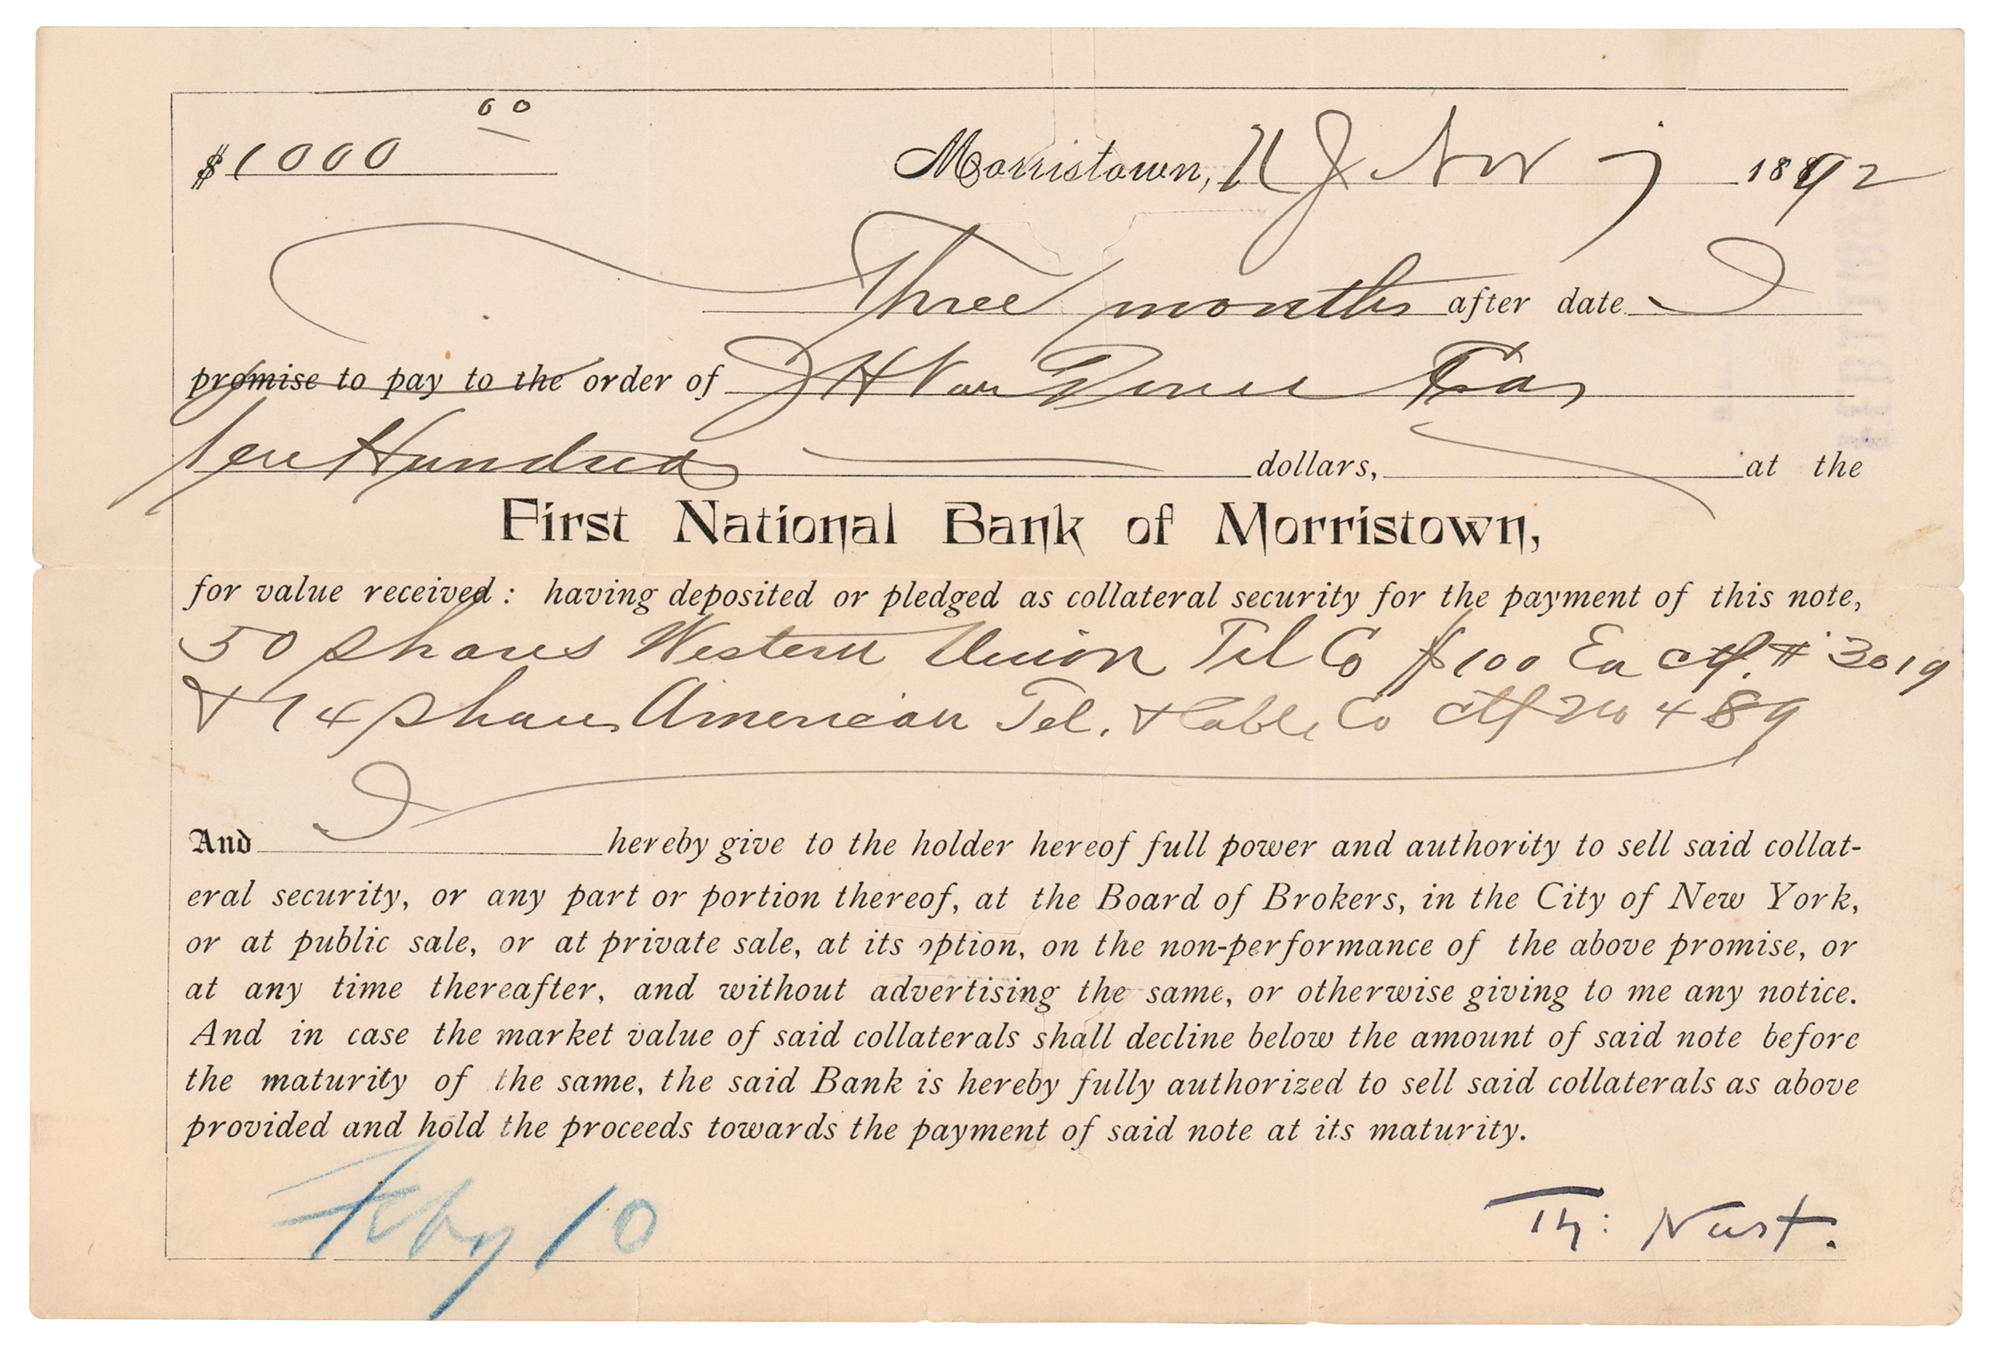 $1000 00
Morristown, N J Nov 7 1892
Three months after date I
promise to pay to the order of J H Van Doren Cas
Ten Hundred dollars, at the
First National Bank of Morristown,
for value received: having deposited or pledged as collateral security for the payment of this note,
50 Shares Western Union Tel Co $100 Ea ctf. # 3019
& 74 Shares American Tel. & Cable Co ctf No 489
And I hereby give to the holder hereof full power and authority to sell said collat-
eral security, or any part or portion thereof, at the Board of Brokers, in the City of New York,
or at public sale, or at private sale, at its option, on the non-performance of the above promise, or
at any time thereafter, and without advertising the same, or otherwise giving to me any notice.
And in case the market value of said collaterals shall decline below the amount of said note before
the maturity of the same, the said Bank is hereby fully authorized to sell said collaterals as above
provided and hold the proceeds towards the payment of said note at its maturity.
Feby 10
Th: Nast.